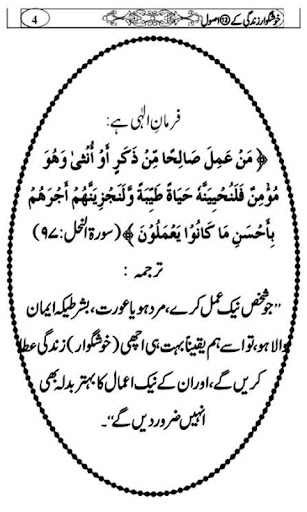 خوشگوار زندگی کے ۱۲ اصول 4
فرمانِ الٰہی ہے:
﴿ مَنْ عَمِلَ صَالِحًا مِّنْ ذَكَرٍ أَوْ أُنْثٰى وَهُوَ
مُؤْمِنٌ فَلَنُحْيِيَنَّهُ حَيَاةً طَيِّبَةً وَّلَنَجْزِيَنَّهُمْ أَجْرَهُمْ
بِأَحْسَنِ مَا كَانُوْا يَعْمَلُوْنَ ﴾ (سورۃ النحل:۹۷)
ترجمہ :
”جو شخص نیک عمل کرے، مرد ہو یا عورت، بشرطیکہ ایمان
والا ہو، تو اسے ہم یقیناً بہت ہی اچھی (خوشگوار) زندگی عطا
کریں گے، اور ان کے نیک اعمال کا بہتر بدلہ بھی
انہیں ضرور دیں گے“۔